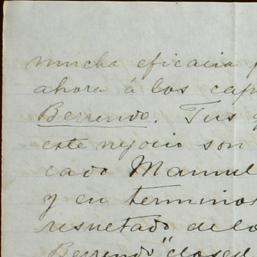 mucha eficacia
ahora á los
Berrendo. Tus
este nejocio son
cado Manuel
y en terminos
resuetado de lo
Berrendo "closed